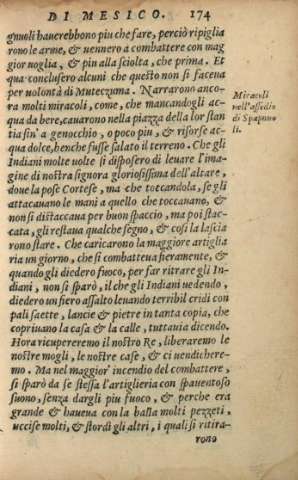 DI MESICO. 174
gnuoli hauerebbono piu che fare, perciò ripiglia
rono le arme, & uennero a combattere con mag
gior uoglia, & piu alla sciolta, che prima. Et
qua conclusero alcuni che questo non si faceua
per uolontà di Muteczuma. Narrarono anco-
ra molti miracoli, come, che mancandogli ac-
qua da bere, cauarono nella piazza della lor stan
tia fin' a genocchio, o poco piu, & risorse ac-
qua dolce, benche fusse salato il terreno. Che gli
Indiani molte uolte si disposero di leuare l'ima-
gine di nostra signora gloriosissima dell'altare,
doue la pose Cortese, ma che toccandola, se gli
attacauano le mani a quello che toccauano, &
non si distaccaua per buon spaccio, ma poi stac-
cata, gli restaua qualche segno, & cosi la lascia
rono stare. Che caricarono la maggiore artiglia
ria un giorno, che si combatteua fieramente, &
quando gli diedero fuoco, per far ritrare gli In-
diani, non si sparò, il che gli Indiani uedendo,
diedero un fiero assalto leuando terribil cridi con
pali saette, lancie & pietre in tanta copia, che
copriuano la casa & la calle, tuttauia dicendo.
Hora ricupereremo il nostro Re, liberaremo le
nostre mogli, le nostre case, & ci uendichere-
mo. Ma nel maggior' incendio del combattere,
si sparò da se stessa l'artiglieria con spauentoso
suono, senza dargli piu fuoco, & perche era
grande & haueua con la balla molti pezzeti,
uccise molti, & stordì gli altri, i quali si ritira-
rono
Miracoli
nell'assedio
di Spagnuo
li.